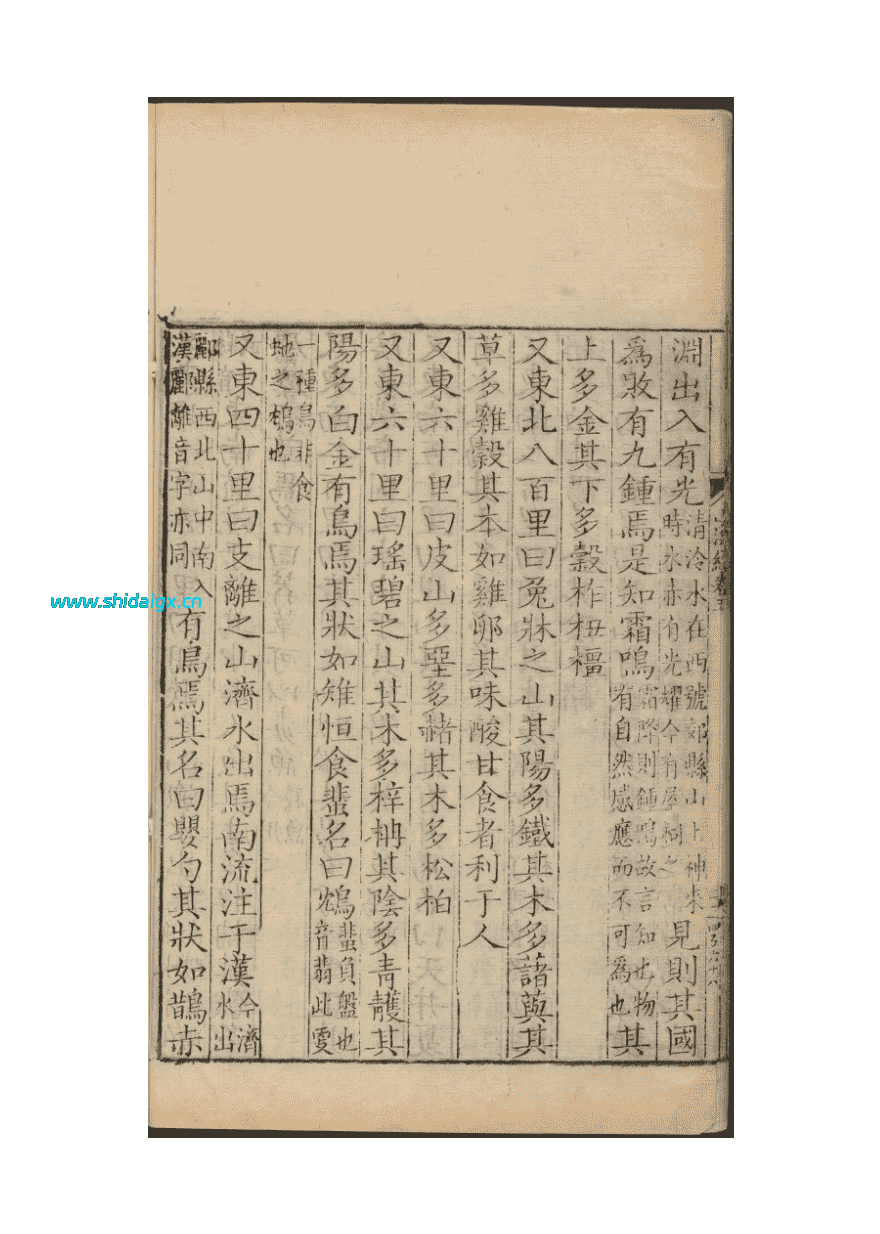 淵出入有光清泠水在西號郊縣山上神來時水赤有光耀今有屋祠之見則其國
為敗有九鍾焉是知霜鳴霜降則鍾鳴故言知也物有自然感應而不可為也其
上多金其下多榖柞杻橿
又東北八百里曰兔牀之山其陽多鐵其木多藷藇其
草多雞榖其本如雞卵其味酸甘食者利于人
又東六十里曰皮山多堊多赭其木多松柏
又東六十里曰瑤碧之山其木多梓枏其陰多青雘其
陽多白金有鳥焉其狀如雉恒食蜚名曰鴆蜚負盤也音翡此更
一種鳥非食虵之鴆也
又東四十里曰支離之山濟水出焉南流注于漢今濟水出
酈縣西北山中南入漢酈離音字亦同有鳥焉其名曰嬰勺其狀如鵲赤
www.shidaigx.cn